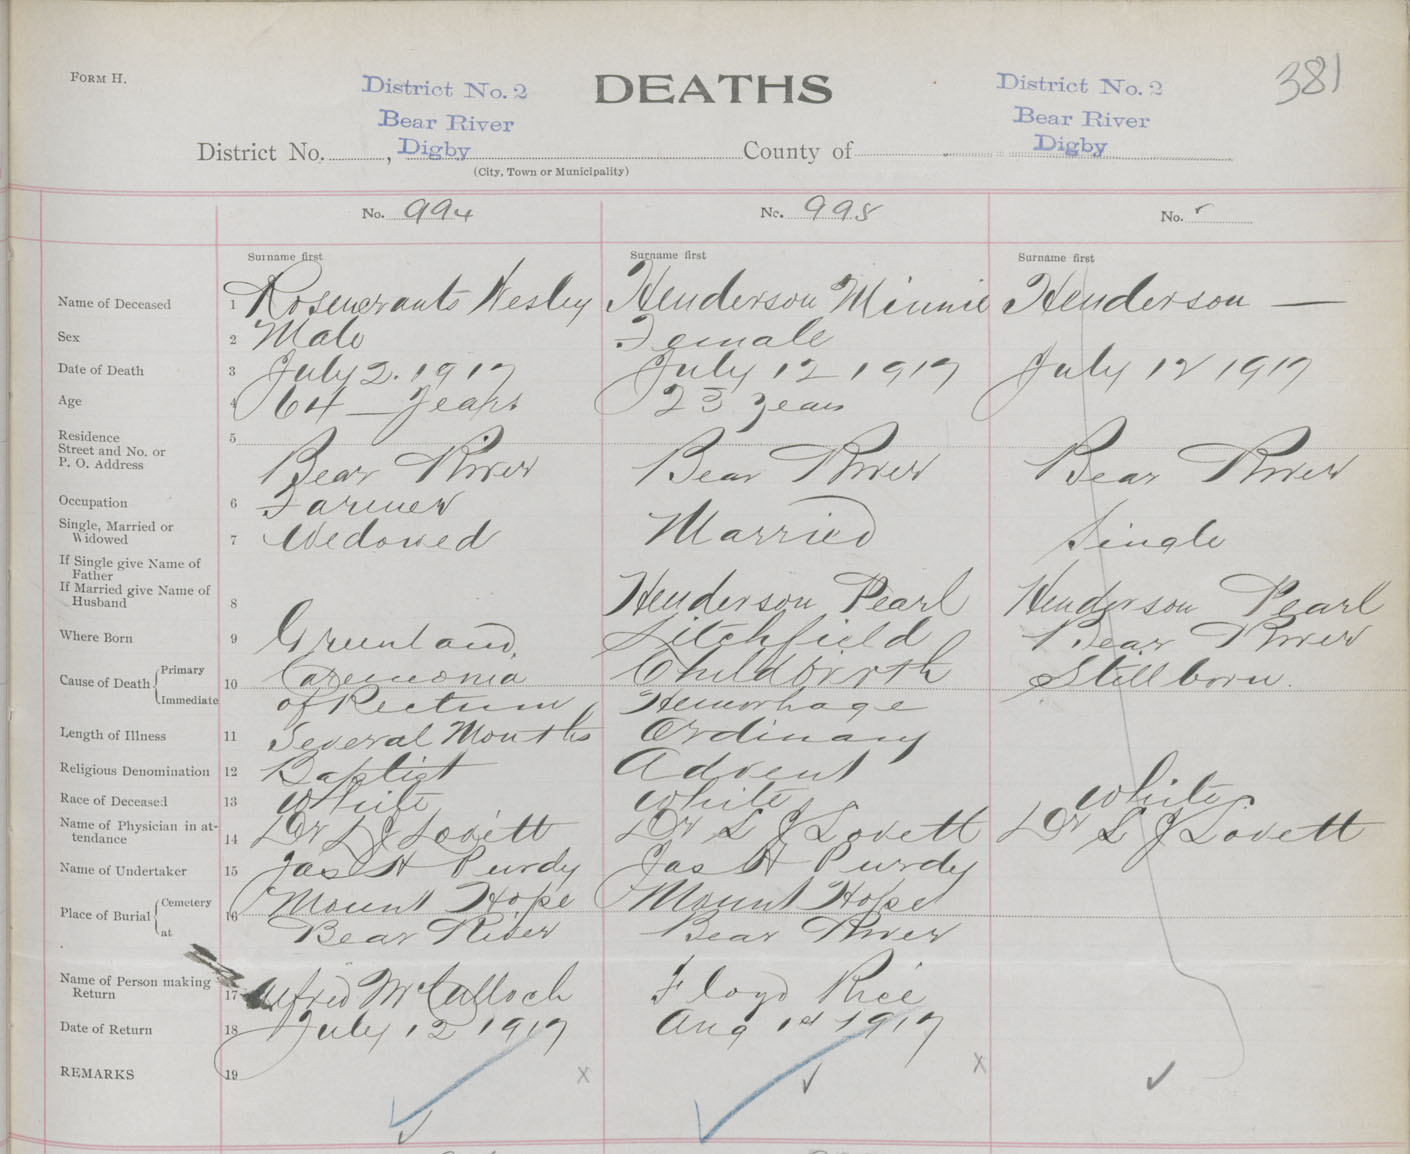 FORM H.
District No. 2
Bear River
Digby
DEATHS
District No. 2
Bear River
Digby
381
District No. , County of
(City, Town or Municipality)
No. 994 No. 998 No.
Surname first Surname first Surname first
Name of Deceased 1 Rosencrants Wesley Henderson Minnie Henderson —
Sex 2 Male Female
Date of Death 3 July 2. 1917 July 12 1917 July 12 1917
Age 4 64 — Years 23 years
Residence 5
Street and No. or
P. O. Address Bear River Bear River Bear River
Occupation 6 Farmer
Single, Married or
Widowed 7 Wedowed Married Single
If Single give Name of
Father
If Married give Name of
Husband 8 Henderson Pearl Henderson Pearl
Where Born 9 Greenland, Litchfield Bear River
Cause of Death { Primary 10 Childbirth Stillborn.
Immediate of Rectum Hemorhage
Length of Illness 11 Several Months Ordinary
Religious Denomination 12 Baptist Advent
Race of Deceased 13 White White White
Name of Physician in at-
tendance 14 Dr L J Lovett Dr L J Lovett Dr L J Lovett
Name of Undertaker 15 Jas H Purdy Jas H Purdy
Place of Burial { Cemetery 16 Mount Hope Mount Hope
at Bear River Bear River
Name of Person making
Return 17 Alfred McCulloch Floyd Rice
Date of Return 18 July 12 1917 Aug 1st 1917
REMARKS 19 x x